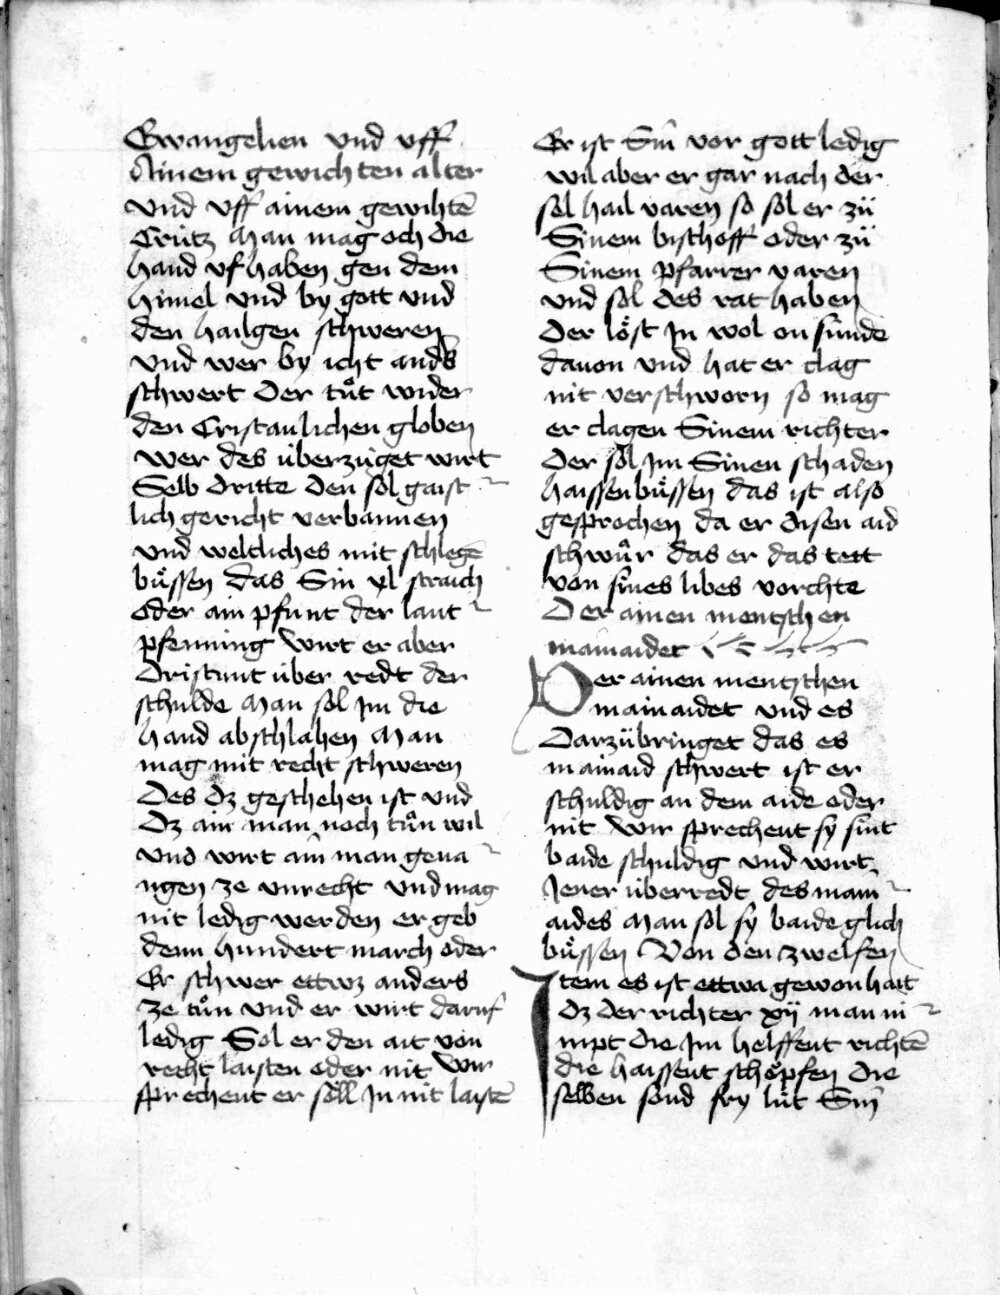 Ewangelien vnd vff
Ainem gewichten alter
vnd vff ainem gewihtē
Crütz Man mag och die
hand vf haben gen dem
himel vnd by gott vnd
den hailgen schweren
vnd wer by icht anders
schwert Der tůt wider
den Cristanlichen globen
wer des überzüget wirt
Selb dritte den sol gaist
lich gericht verbannen
vnd weltliches mit schlegē
bůssen das Sin xl straich
oder ain pfunt der lant
pfenning Wirt er aber
Dristunt über redt der
schulde Man sol jm die
hand abschlahen Man
mag mit recht schweren
Des dz geschehen ist vnd
Dz ain man noch tůn wil
vnd wirt ain man geua
ngen ze vnrecht vnd mag
nit ledig werden er geb
denn hundert march oder
Er schwer ettwz anders
ze tůn vnd er wirt daruf
ledig Sol er den ait von
recht laisten oder nit Wir
sprechent er söll jn nit laistē
Er ist Sin vor gott ledig
wil aber er gar nach der
sel hail varen so sol er zü
Sinem bischoff oder zü
Sinem pfarrer varen
vnd sol des rat haben
Der löst jn wol on sünde
dauon vnd hat er clag
nit verschworn so mag
er clagen Sinem richter
Der sol jm Sinen schaden
haissen bůssen das ist also
gesprochen da er disen aid
schwůr das er das tett
von sines libes vorchte
Der ainen mentschen
mainaidet
Der ainen mentschen
mainaidet vnd es
Darzübringet das es
mainaid schwert ist er
schuldig an dem aide oder
nit Wir sprechent sy sint
baide schuldig vnd wirt
Jener überredt des main
aides Man sol sy baide glich
bůssen Von den zwelfen
Item es ist ettwa gewonhait
Dz der richter xij man ni
mpt die jm helffent richtē
die haissent schöpfen die
selben sönd fry lüt Sin